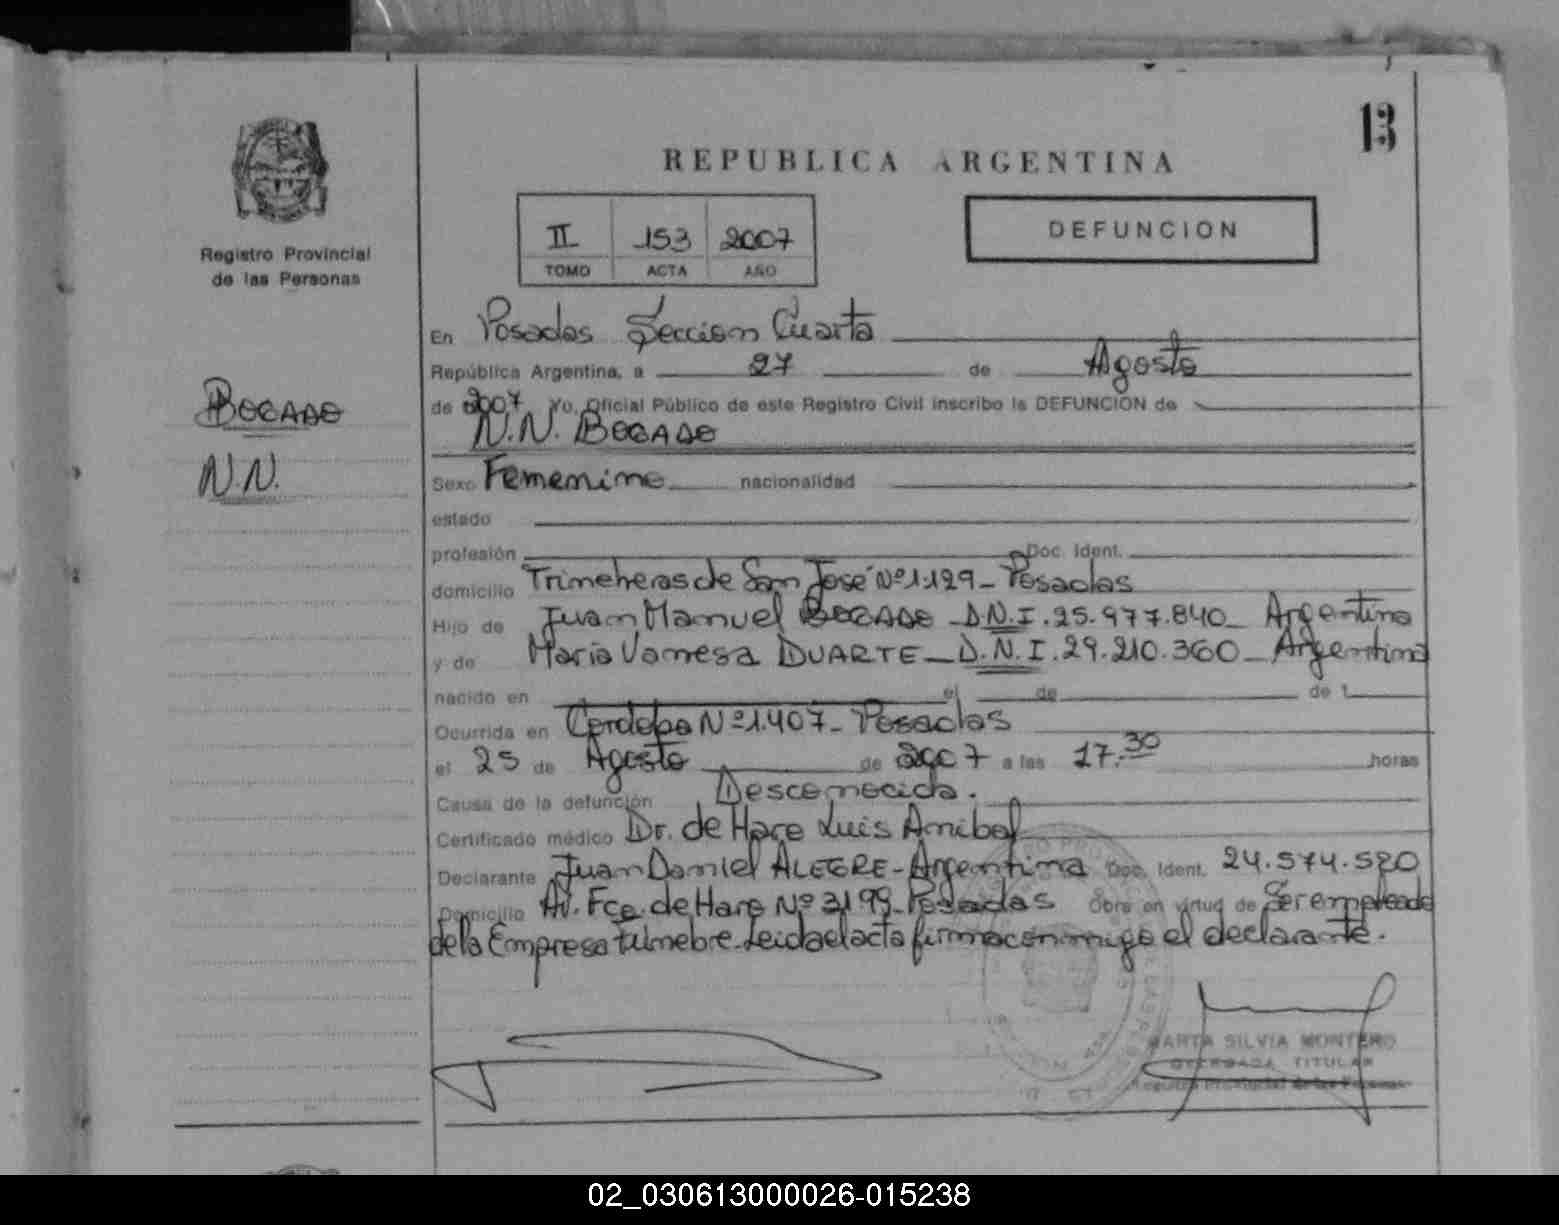 13
REPUBLICA ARGENTINA
Registro Provincial
de las Personas
II 153 2007
TOMO ACTA AÑO
DEFUNCION
BOGADO
N.N.
En Posadas Sección Cuarta
República Argentina, a 27 de Agosto
de 2007 Yo, Oficial Público de este Registro Civil inscribo la DEFUNCION de
N.N. BOGADO
Sexo Femenino nacionalidad
estado
profesión Doc. Ident.
domicilio Trincheras de San José Nº 1.129 - Posadas
Hijo de Juan Manuel BOGADO - D.N.I. 25.977.840 - Argentino
y de María Vanesa DUARTE - D.N.I. 29.210.360 - Argentina
nacido en el de de 1
Ocurrida en Córdoba Nº 1.407 - Posadas
el 25 de Agosto de 2007 a las 17.30 horas
Causa de la defunción Desconocida.
Certificado médico Dr. de Haro Luis Anibal
Declarante Juan Daniel ALEGRE - Argentina Doc. Ident. 24.574.520
Domicilio Av. Fco. de Haro Nº 3199 - Posadas Obra en virtud de Ser empleado
de la Empresa fúnebre. Leida el acta firma conmigo el declarante.
MARTA SILVIA MONTERO
DELEGADA TITULAR
Registro Provincial de las Personas
02_030613000026-015238